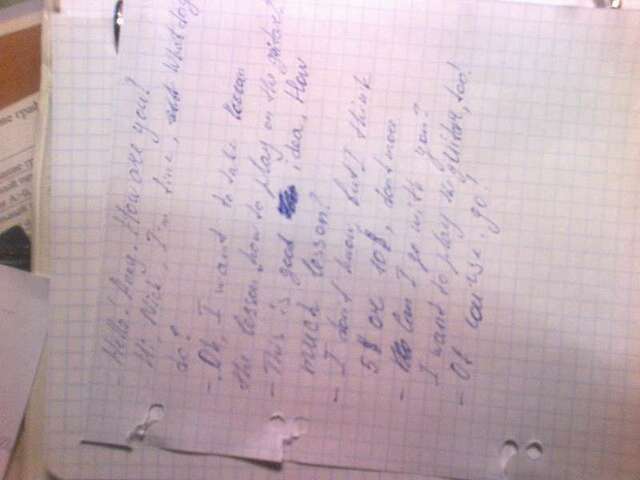 - Hello! Amy. How are you?
- Hi Nick, I'm fine, What do you
do?
- Oh, I want to take
the lesson how to play on the guitar?
- This is good idea, How
much lesson?
- I don't know, but I think
5$ or 10$, don't more
- Can I go with you?
I want to play guitar, too!
- Of course, go!